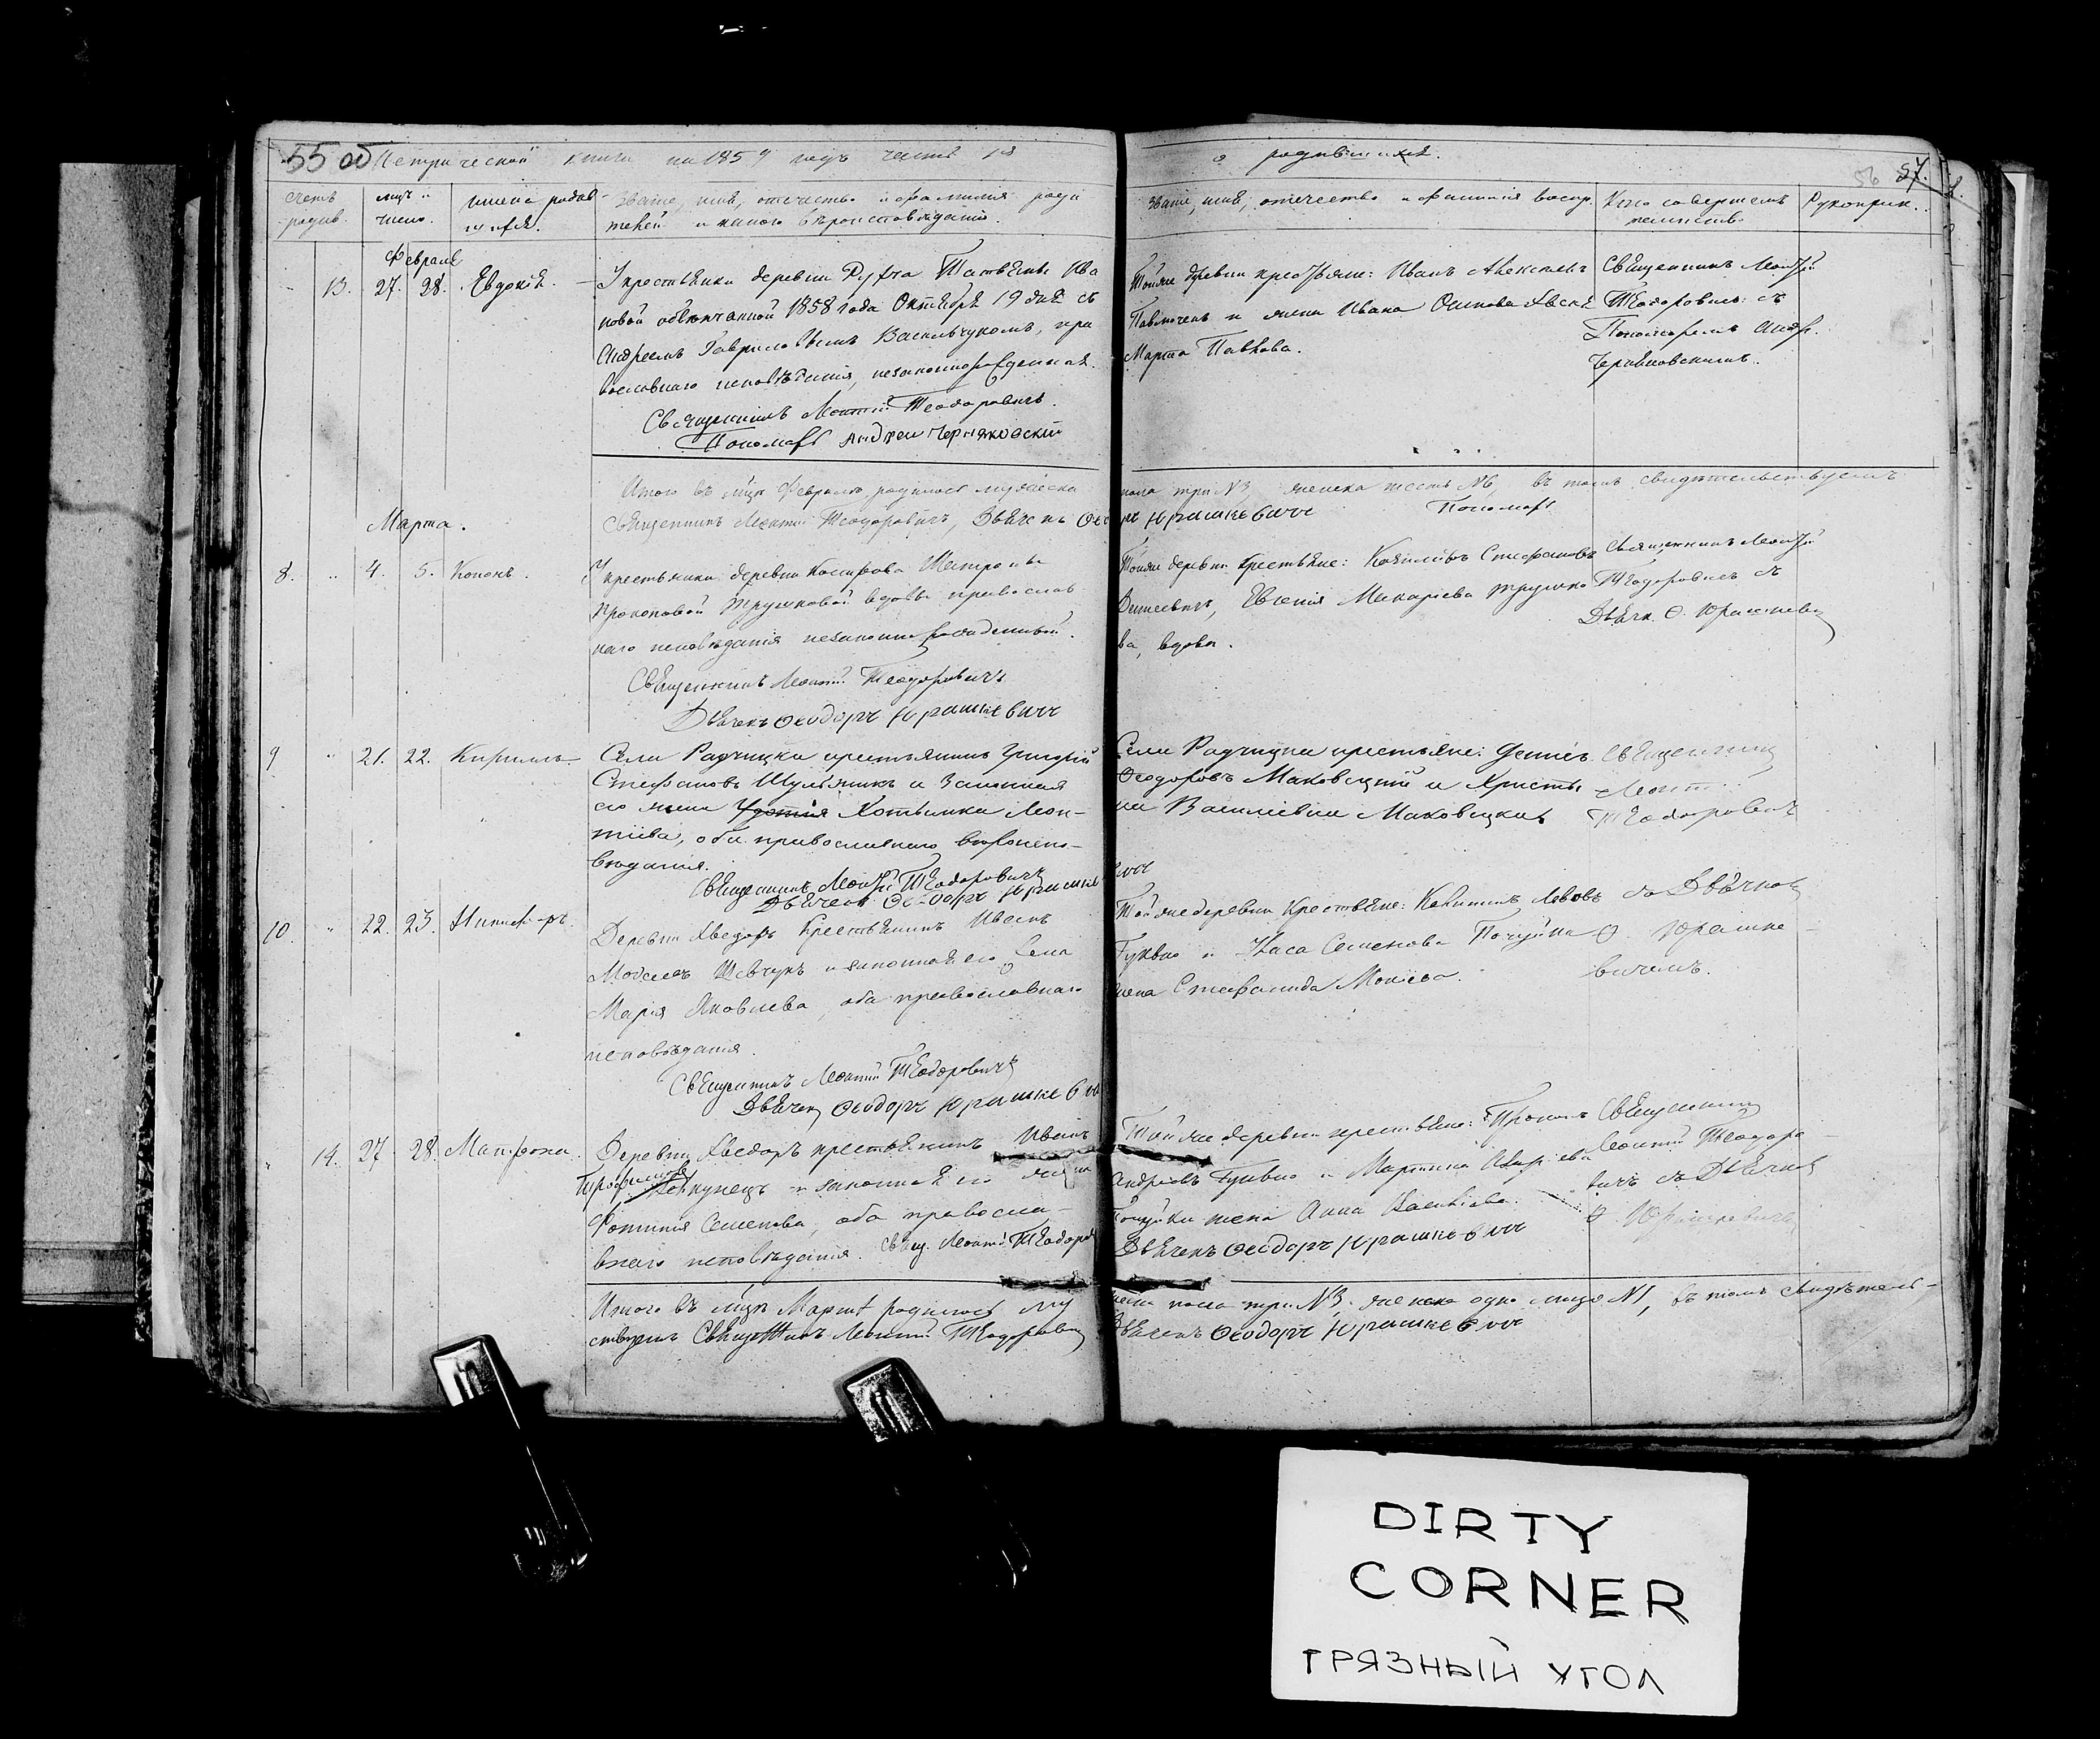 55 об Метрической книги на 1859 годъ часть 1я
о родившихся.
57.
56
счетъ родив.
мцъ и число.
имена родившихся.
Званіе, имя, отечество и фамилія роди
телей и какого вѣроисповѣданія.
званіе, имя, отечество и фамилія воспр.
Кто совершалъ таинство.
Рукоприк.
Февраля
13. 27. 28. Евдокія.
У крестьянки деревни Рухча Татьяны Ива
новой обвѣнчанной 1858 года Октября 19 дня съ
Андреемъ Гавриловымъ Васильчукомъ, пра
вославнаго исповѣданія, незаконнорожденная.
Священникъ Леонтій Теодоровичъ.
Пономарь Андрей Черняковскій
Тойже деревни крестьяне: Иванъ Алексѣевъ
и жена Ивана Осипова
Марта Павлова.
Священникъ Леонтій
Теодоровичъ съ
Пономаремъ Андр.
Черняковскимъ.
Итого въ мцѣ Февралѣ родилось мужеска
пола три №3, женска шесть №6, въ томъ свидѣтельствуемъ
Священникъ Леонтій Теодоровичъ, Дьячекъ Ѳеодоръ Юрашкевичъ Пономарь
Марта.
8. 4. 5. Кононъ.
У крестьянки деревни
Прокоповой вдовы православ
наго исповѣданія незаконнорожденный.
Священникъ Леонтій Теодоровичъ
Дьячекъ Ѳеодоръ Юрашкевичъ
Тойже деревни крестьяне: Стефановъ
Евгенія Макаріева
ва, вдова.
Священникъ Леонтій
Теодоровичъ съ
Дьячк. Ѳ. Юрашкеви
9 21. 22. Кириллъ
Села Радчицка крестьянинъ Григорій
Стефановъ Шульжикъ и Законная
его жена Хотьимка Леон-
тіева, оба православнаго вѣроиспо-
вѣданія.
Священникъ Леонтій Теодоровичъ
Дьячекъ Ѳеодоръ Юрашкевичъ
Села Радчицка крестьяне: Денисъ
Ѳеодоровъ Маковецкій и Христи
на Василіевна Маковецкая
Священникъ
Леонт.
Теодоровичъ
10. 22. 23. Никиф-ръ
Деревни Хведоръ Крестьянинъ Иванъ
Шевчукъ и законная его жена
Марія Яковлева, оба православнаго
исповѣданія.
Священникъ Леонтій Теодоровичъ
Дьячекъ Ѳеодоръ Юрашкевичъ
Той же деревни Крестьяне: Львовъ
Гуквко и Власа Семенова
жена Стефанида Моисеева.
съ Дьячкомъ
Ѳ. Юрашке-
вичемъ.
14. 27 28. Матрона.
Деревни Хведоръ крестьянинъ Иванъ
Трофимовъ и законная его жена
Фотинія Семенова, оба правосла-
внаго исповѣданія. Свящ. Леонт. Теодоров
Той же деревни крестьяне:
Андреевъ Гуквко и
жена Анна
Дьячекъ Ѳеодоръ Юрашкевичъ
Священникъ
Леонтій Теодоро-
вичъ съ Дьячкомъ
Ѳ. Юрашкевичемъ
Итого въ мцѣ Мартѣ родилось му
жеска пола три №3, женска одно лице №1, въ томъ свидѣтель-
ствуемъ Священникъ Леонтій Теодоровичъ
Дьячекъ Ѳеодоръ Юрашкевичъ
DIRTY
CORNER
ГРЯЗНЫЙ УГОЛ